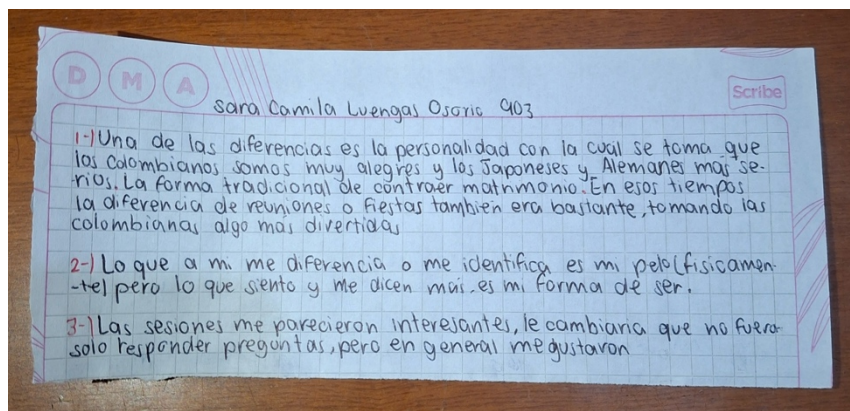 D M A
Scribe
Sara Camila Luengas Osorio 903
1-) Una de las diferencias es la personalidad con la cual se toma que
los colombianos somos muy alegres y los Japoneses y Alemanes mas se-
rios. La forma tradicional de contraer matrimonio. En esos tiempos
la diferencia de reuniones o fiestas tambien era bastante, tomando las
colombianas algo mas divertidas
2-) Lo que a mi me diferencia o me identifica es mi pelo (fisicamen-
-te) pero lo que siento y me dicen mas es mi forma de ser.
3-) Las sesiones me parecieron interesantes, le cambiaria que no fuera
solo responder preguntas, pero en general me gustaron